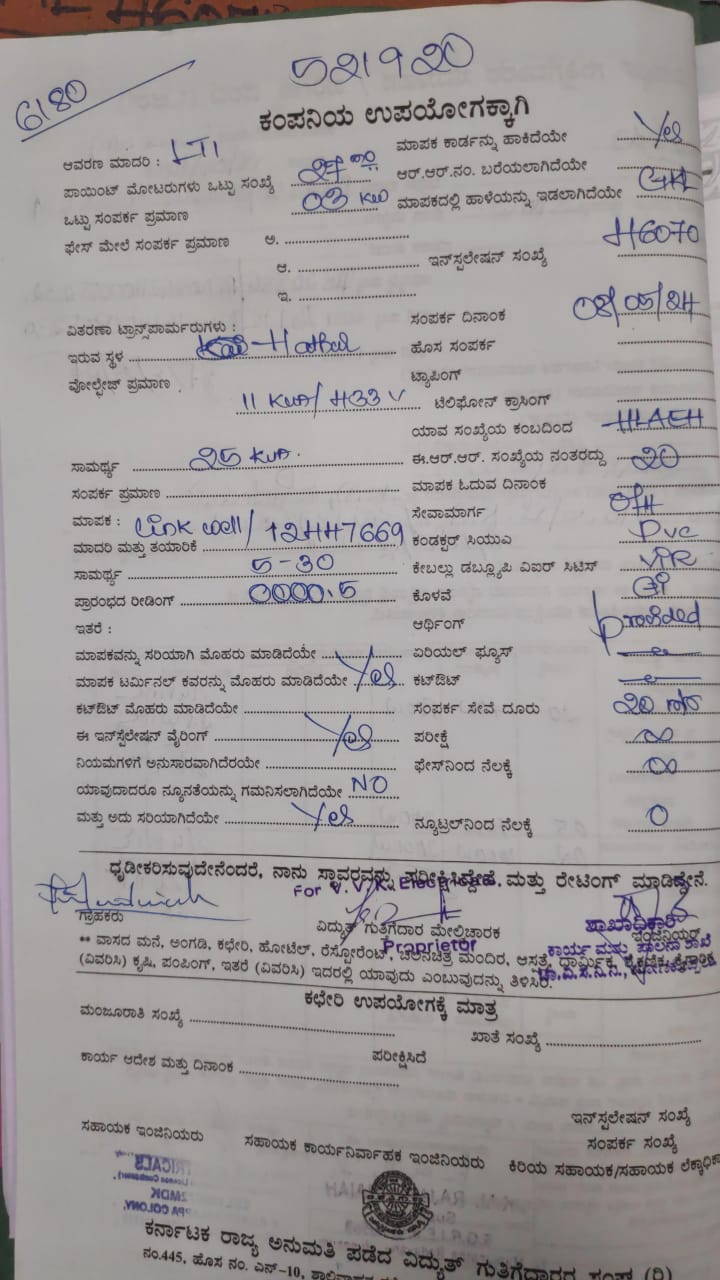 6180
521920
ಕಂಪನಿಯ ಉಪಯೋಗಕ್ಕಾಗಿ
ಆವರಣ ಮಾದರಿ : LT1 ಮಾಪಕ ಕಾರ್ಡನ್ನು ಹಾಕಿದೆಯೇ Yes
ಪಾಯಿಂಟ್ ಮೋಟರುಗಳು ಒಟ್ಟು ಸಂಖ್ಯೆ ಆರ್.ಆರ್.ನಂ. ಬರೆಯಲಾಗಿದೆಯೇ
ಒಟ್ಟು ಸಂಪರ್ಕ ಪ್ರಮಾಣ 03 KW ಮಾಪಕದಲ್ಲಿ ಹಾಳೆಯನ್ನು ಇಡಲಾಗಿದೆಯೇ
ಫೇಸ್ ಮೇಲೆ ಸಂಪರ್ಕ ಪ್ರಮಾಣ ಅ.
ಆ. ಇನ್‌ಸ್ಪಲೇಷನ್ ಸಂಖ್ಯೆ H6070
ಇ.
ವಿತರಣಾ ಟ್ರಾನ್ಸ್‌ಪಾರ್ಮರುಗಳು : ಸಂಪರ್ಕ ದಿನಾಂಕ 08/05/24
ಇರುವ ಸ್ಥಳ ಹೊಸ ಸಂಪರ್ಕ
ವೋಲ್ಟೇಜ್ ಪ್ರಮಾಣ ಟ್ಯಾಪಿಂಗ್
11 KVA/433 V ಟೆಲಿಫೋನ್ ಕ್ರಾಸಿಂಗ್
ಯಾವ ಸಂಖ್ಯೆಯ ಕಂಬದಿಂದ
ಸಾಮರ್ಥ್ಯ 25 KVA. ಈ.ಆರ್.ಆರ್. ಸಂಖ್ಯೆಯ ನಂತರದ್ದು 20
ಸಂಪರ್ಕ ಪ್ರಮಾಣ ಮಾಪಕ ಓದುವ ದಿನಾಂಕ
ಮಾಪಕ : ಸೇವಾಮಾರ್ಗ O/H
ಮಾದರಿ ಮತ್ತು ತಯಾರಿಕೆ Link well/12447669 ಕಂಡಕ್ಟರ್ ಸಿಯುಎ PVC
ಸಾಮರ್ಥ್ಯ 5-30 ಕೇಬಲ್ಲು ಡಬ್ಲ್ಯೂಪಿ ವಿಐರ್ ಸಿಟಿಸ್ VIR
ಪ್ರಾರಂಭದ ರೀಡಿಂಗ್ 0000.5 ಕೊಳವೆ GI
ಇತರೆ : ಆರ್ಥಿಂಗ್ provided
ಮಾಪಕವನ್ನು ಸರಿಯಾಗಿ ಮೊಹರು ಮಾಡಿದೆಯೇ ಏರಿಯಲ್ ಫ್ಯೂಸ್
ಮಾಪಕ ಟರ್ಮಿನಲ್ ಕವರನ್ನು ಮೊಹರು ಮಾಡಿದೆಯೇ Yes ಕಟ್‌ಔಟ್
ಕಟ್‌ಔಟ್ ಮೊಹರು ಮಾಡಿದೆಯೇ ಸಂಪರ್ಕ ಸೇವೆ ದೂರು 20 mtr
ಈ ಇನ್‌ಸ್ಟಲೇಷನ್ ವೈರಿಂಗ್ Yes ಪರೀಕ್ಷೆ ∞
ನಿಯಮಗಳಿಗೆ ಅನುಸಾರವಾಗಿದೆರಯೇ ಫೇಸ್‌ನಿಂದ ನೆಲಕ್ಕೆ ∞
ಯಾವುದಾದರೂ ನ್ಯೂನತೆಯನ್ನು ಗಮನಿಸಲಾಗಿದೆಯೇ NO
ಮತ್ತು ಅದು ಸರಿಯಾಗಿದೆಯೇ Yes ನ್ಯೂಟ್ರಲ್‌ನಿಂದ ನೆಲಕ್ಕೆ 0
ಧೃಡೀಕರಿಸುವುದೇನೆಂದರೆ, ನಾನು ಸ್ಥಾವರವನ್ನು ಪರೀಕ್ಷಿಸಿದ್ದೇನೆ. ಮತ್ತು ರೇಟಿಂಗ್ ಮಾಡಿದ್ದೇನೆ.
For V.V.K. Electricals.
ಗ್ರಾಹಕರು ವಿದ್ಯುತ್ ಗುತ್ತಿಗೆದಾರ ಮೇಲ್ವಿಚಾರಕ ಶಾಖಾಧಿಕಾರಿ ಇಂಜಿನಿಯರ್
Proprietor ಕಾರ್ಯ ಮತ್ತು ಪಾಲನಾ ಶಾಖೆ
** ವಾಸದ ಮನೆ, ಅಂಗಡಿ, ಕಛೇರಿ, ಹೋಟೆಲ್, ರೆಸ್ಟೋರೆಂಟ್, ಚಲನಚಿತ್ರ ಮಂದಿರ, ಆಸ್ಪತ್ರೆ, ಧಾರ್ಮಿಕ, ಶೈಕ್ಷಣಿಕ, ಕೈಗಾರಿಕ
(ವಿವರಿಸಿ) ಕೃಷಿ, ಪಂಪಿಂಗ್, ಇತರೆ (ವಿವರಿಸಿ) ಇದರಲ್ಲಿ ಯಾವುದು ಎಂಬುವುದನ್ನು ತಿಳಿಸಿರಿ.
ಕಛೇರಿ ಉಪಯೋಗಕ್ಕೆ ಮಾತ್ರ
ಮಂಜೂರಾತಿ ಸಂಖ್ಯೆ ಖಾತೆ ಸಂಖ್ಯೆ
ಕಾರ್ಯ ಆದೇಶ ಮತ್ತು ದಿನಾಂಕ ಪರೀಕ್ಷಿಸಿದೆ
ಇನ್‌ಸ್ಪಲೇಷನ್ ಸಂಖ್ಯೆ
ಸಂಪರ್ಕ ಸಂಖ್ಯೆ
ಸಹಾಯಕ ಇಂಜಿನಿಯರು ಸಹಾಯಕ ಕಾರ್ಯನಿರ್ವಾಹಕ ಇಂಜಿನಿಯರು ಕಿರಿಯ ಸಹಾಯಕ/ಸಹಾಯಕ ಲೆಕ್ಕಾಧಿಕಾ
ಕರ್ನಾಟಕ ರಾಜ್ಯ ಅನುಮತಿ ಪಡೆದ ವಿದ್ಯುತ್ ಗುತ್ತಿಗೆದಾರರ ಸಂಘ (ರಿ)
ನಂ.445, ಹೊಸ ನಂ. ಎನ್-10,